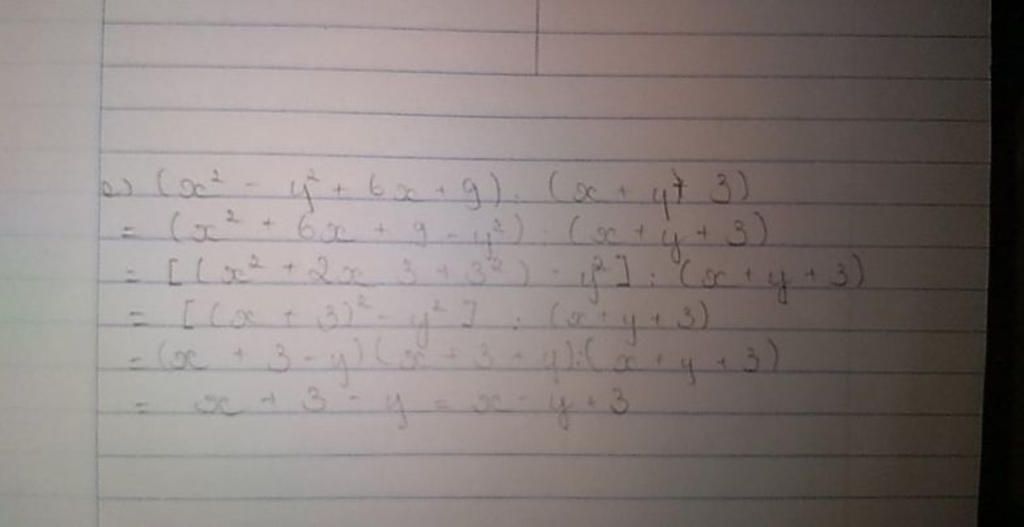 a) (x² - y² + 6x + 9) : (x + y + 3)
= (x² + 6x + 9 - y²) : (x + y + 3)
= [(x² + 2x 3 + 3²) - y²] : (x + y + 3)
= [(x + 3)² - y²] : (x + y + 3)
= (x + 3 - y)(x + 3 + y) : (x + y + 3)
= x + 3 - y = x - y + 3